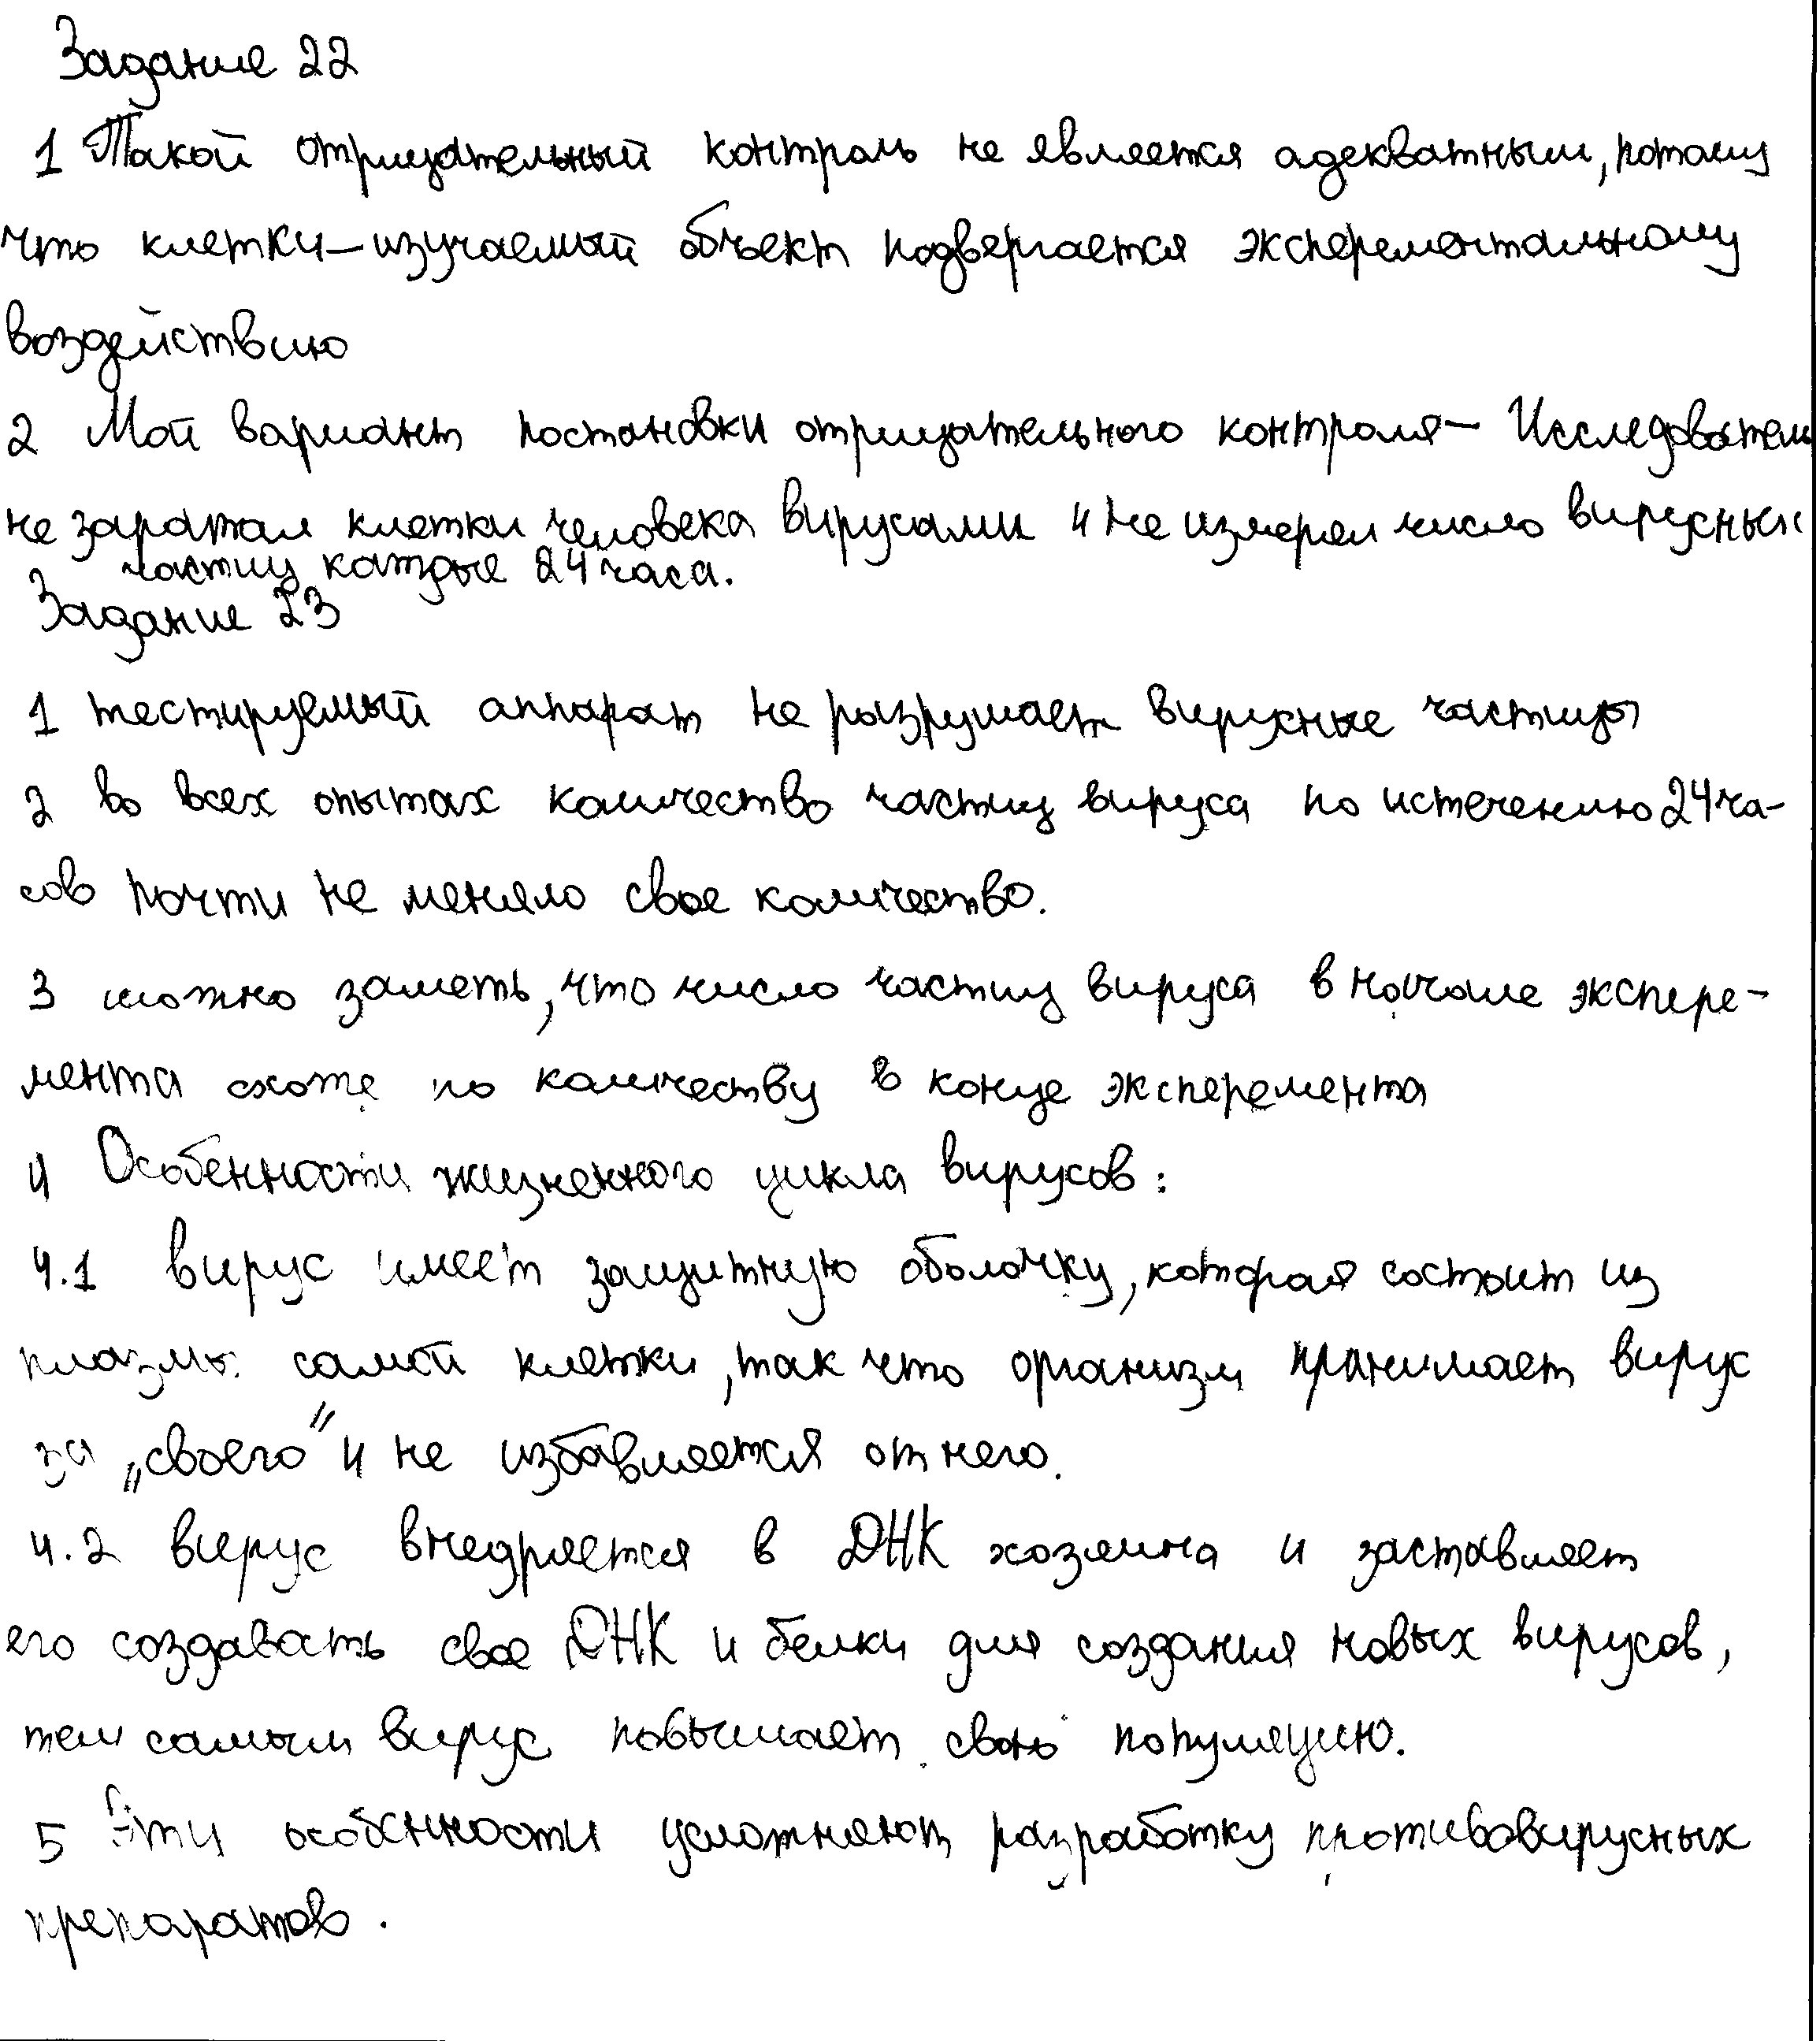 Задание 22
1 Такой отрицательный контроль не является адекватным, потому
что клетки – изучаемый объект подвергается эксперементальному
воздействию
2 Мой вариант постановки отрицательного контроля – Исследователь
не заражал клетки человека вирусами и не измерял число вирусных
частиц каждые 24 часа.
Задание 23
1 тестируемый аппарат не разрушает вирусные частицы
2 во всех опытах количество частиц вируса по истечению 24 ча-
сов почти не меняло свое количество.
3 можно заметь, что число частиц вируса в начале экспере-
мента схоже по количеству в конце эксперемента
4 Особенности жизненного цикла вирусов:
4.1 вирус имеет защитную оболочку, которая состоит из
плазмы самой клетки, так что организм принимает вирус
за „своего" и не избавляется от него.
4.2 вирус внедряется в ДНК хозяина и заставляет
его создавать свое ДНК и белки для создания новых вирусов,
тем самым вирус повышает свою популяцию.
5 Эти особенности усложняют разработку противовирусных
препаратов.